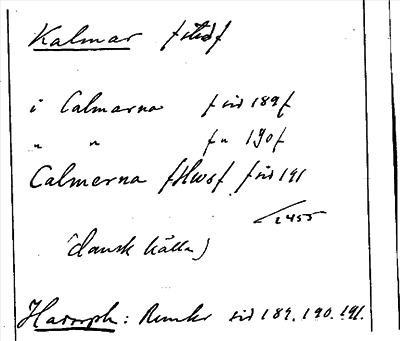 Kalmar ſtadſ
i Calmarna ſ sid 189 ſ
" " ſ " 190 ſ
Calmerna ſ ſ sid 191
1455
(dansk källa)
Hadorph: Rimkr sid 189. 190. 191.